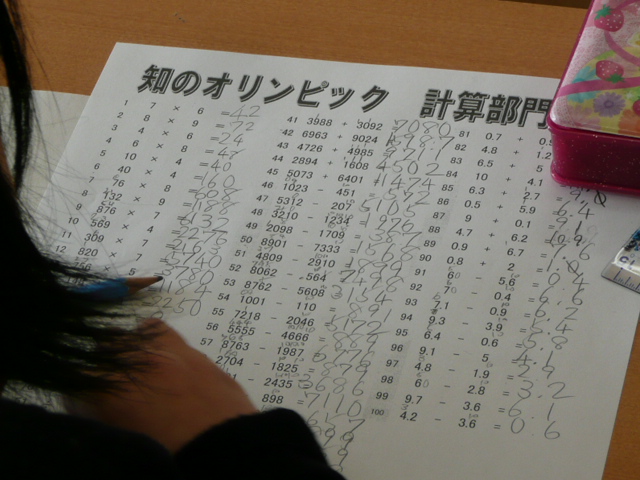 知のオリンピック 計算部門
1 7 × 6 = 42
2 8 × 9 = 72
3 4 × 6 = 24
4 6 × 8 = 48
5 10 × 4 = 40
6 40 × 4 = 160
7 76 × 8 = 608
8 132 × 9 = 1188
9 876 ×
10 569 × 4 = 2276
11 309 × 7 = 2163
12 820 × 7 = 5740
8780
1184
8250
41 3988 + 3092 = 7080
42 6963 + 9024 = 15987
43 4726 + 4985 = 9711
44 2894 + 1608 = 4502
45 5073 + 6401 = 11474
46 1023 - 451 = 572
47 5312 - 207 = 5105
48 3210 - 1234 = 1976
49 2098 - 1709 = 389
50 8901 - 7333 = 1568
51 4809 - 2910 = 1899
52 8062 - 564 = 7498
53 8762 - 5608 = 3154
54 1001 - 110 = 891
55 7218 - 2046 = 5172
56 5555 - 4666 = 889
57 8763 - 1987 =
2704 - 1825 = 879
- 2435 = 5686
898 = 7110
81 0.7 + 0.5
82 4.8 + 1.2
83 6.5 + 5
84 10 + 4.1
85 6.3 + 2.7 =
86 0.5 + 5.9 = 6.4
87 9 + 0.1 = 9.1
88 4.7 + 6.2 = 10.9
89 0.9 + 6.7 = 7.6
90 0.8 + 2 =
91 6 - 5.6 = 0.4
92 7 - 0.4 = 6.6
93 7.1 - 0.9 = 6.2
94 9.3 - 3.9 = 5.4
95 6.4 - 0.6 = 5.8
96 9.1 - 5 = 4.1
97 4.8 - 1.9 = 2.9
98 6 - 2.8 = 3.2
99 9.7 - 3.6 = 6.1
100 4.2 - 3.6 = 0.6